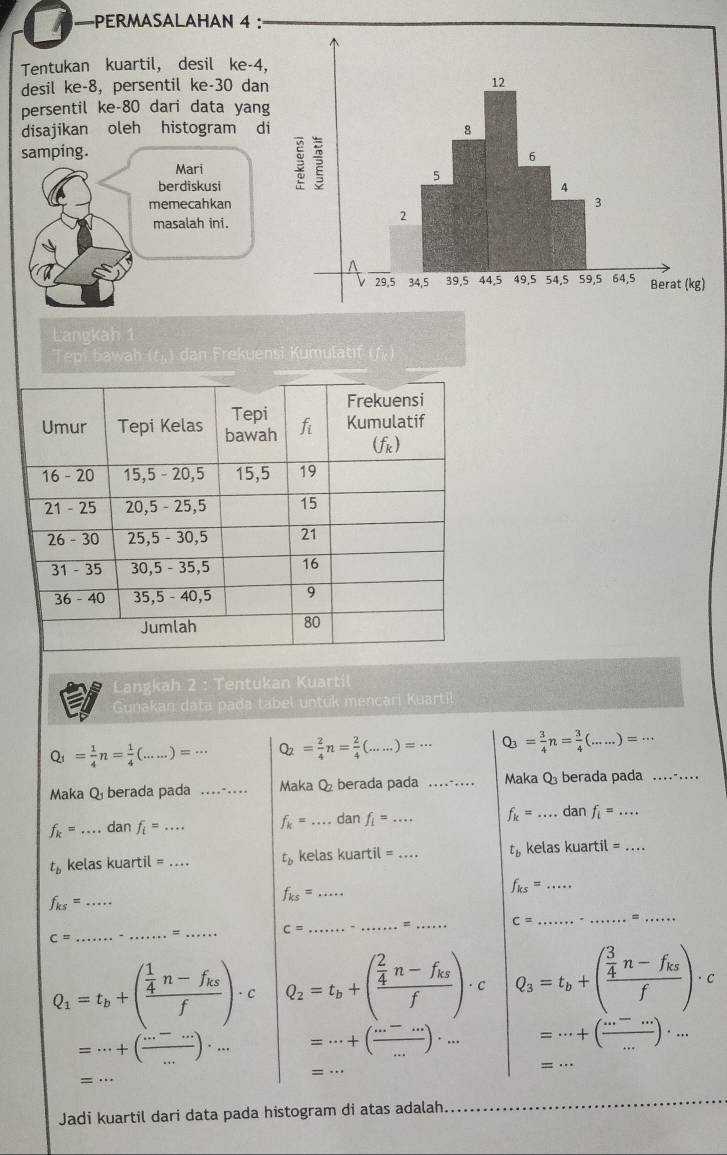 PERMASALAHAN 4 :
Tentukan kuartil, desil ke-4,
desil ke-8, persentil ke-30 dan
persentil ke-80 dari data yang
disajikan oleh histogram di
samping.
Mari
berdiskusi
memecahkan
masalah ini.
Frekuensi
Kumulatif
2 5 8 12 6 4 3
29,5 34,5 39,5 44,5 49,5 54,5 59,5 64,5 Berat (kg)
Langkah 1
Tepi bawah (t_b) dan Frekuensi Kumulatif (f_k)
Umur Tepi Kelas Tepi bawah f_i Frekuensi Kumulatif (f_k)
16 - 20 15,5 - 20,5 15,5 19
21 - 25 20,5 - 25,5 15
26 - 30 25,5 - 30,5 21
31 - 35 30,5 - 35,5 16
36 - 40 35,5 - 40,5 9
Jumlah 80
Langkah 2 : Tentukan Kuartil
Gunakan data pada tabel untuk mencari Kuartil
Q₁ = 1/4 n = 1/4 (... ...) = ...
Maka Q₁ berada pada ....-....
f_k = .... dan f_i = ....
t_b kelas kuartil = ....
f_ks = .....
c = ....... - ....... = ......
Q₁ = t_b + ((1/4 n − f_ks)/f) · c
= ... + ((... − ...)/...) · ...
= ...
Q₂ = 2/4 n = 2/4 (... ...) = ...
Maka Q₂ berada pada ....-....
f_k = .... dan f_i = ....
t_b kelas kuartil = ....
f_ks = .....
c = ....... - ....... = ......
Q₂ = t_b + ((2/4 n − f_ks)/f) · c
= ... + ((... − ...)/...) · ...
= ...
Q₃ = 3/4 n = 3/4 (... ...) = ...
Maka Q₃ berada pada ....-....
f_k = .... dan f_i = ....
t_b kelas kuartil = ....
f_ks = .....
c = ....... - ....... = ......
Q₃ = t_b + ((3/4 n − f_ks)/f) · c
= ... + ((... − ...)/...) · ...
= ...
Jadi kuartil dari data pada histogram di atas adalah..............................